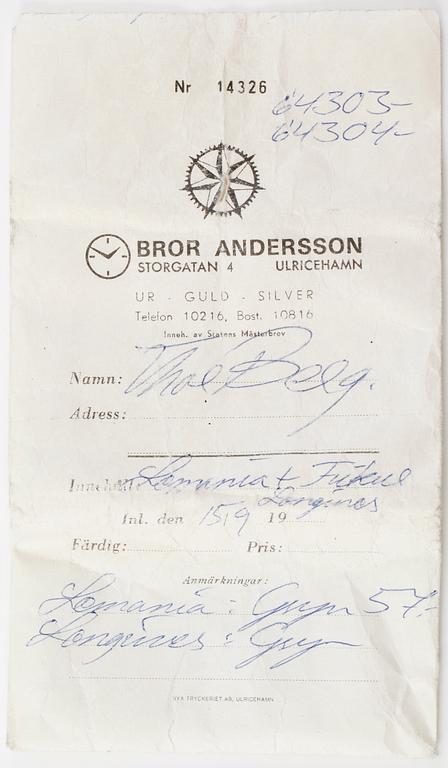 Nr 14326
64303-
64304-
BROR ANDERSSON
STORGATAN 4 ULRICEHAMN
UR - GULD - SILVER
Telefon 10216, Bost. 10816
Inneh. av Statens Mästarbrev
Namn: Thore Berg.
Adress:
Innehåll: Lemania +
Longines
Inl. den 15/9 19
Färdig: Pris:
Anmärkningar:
Lemania: 57-
Longines:
NYA TRYCKERIET AB, ULRICEHAMN